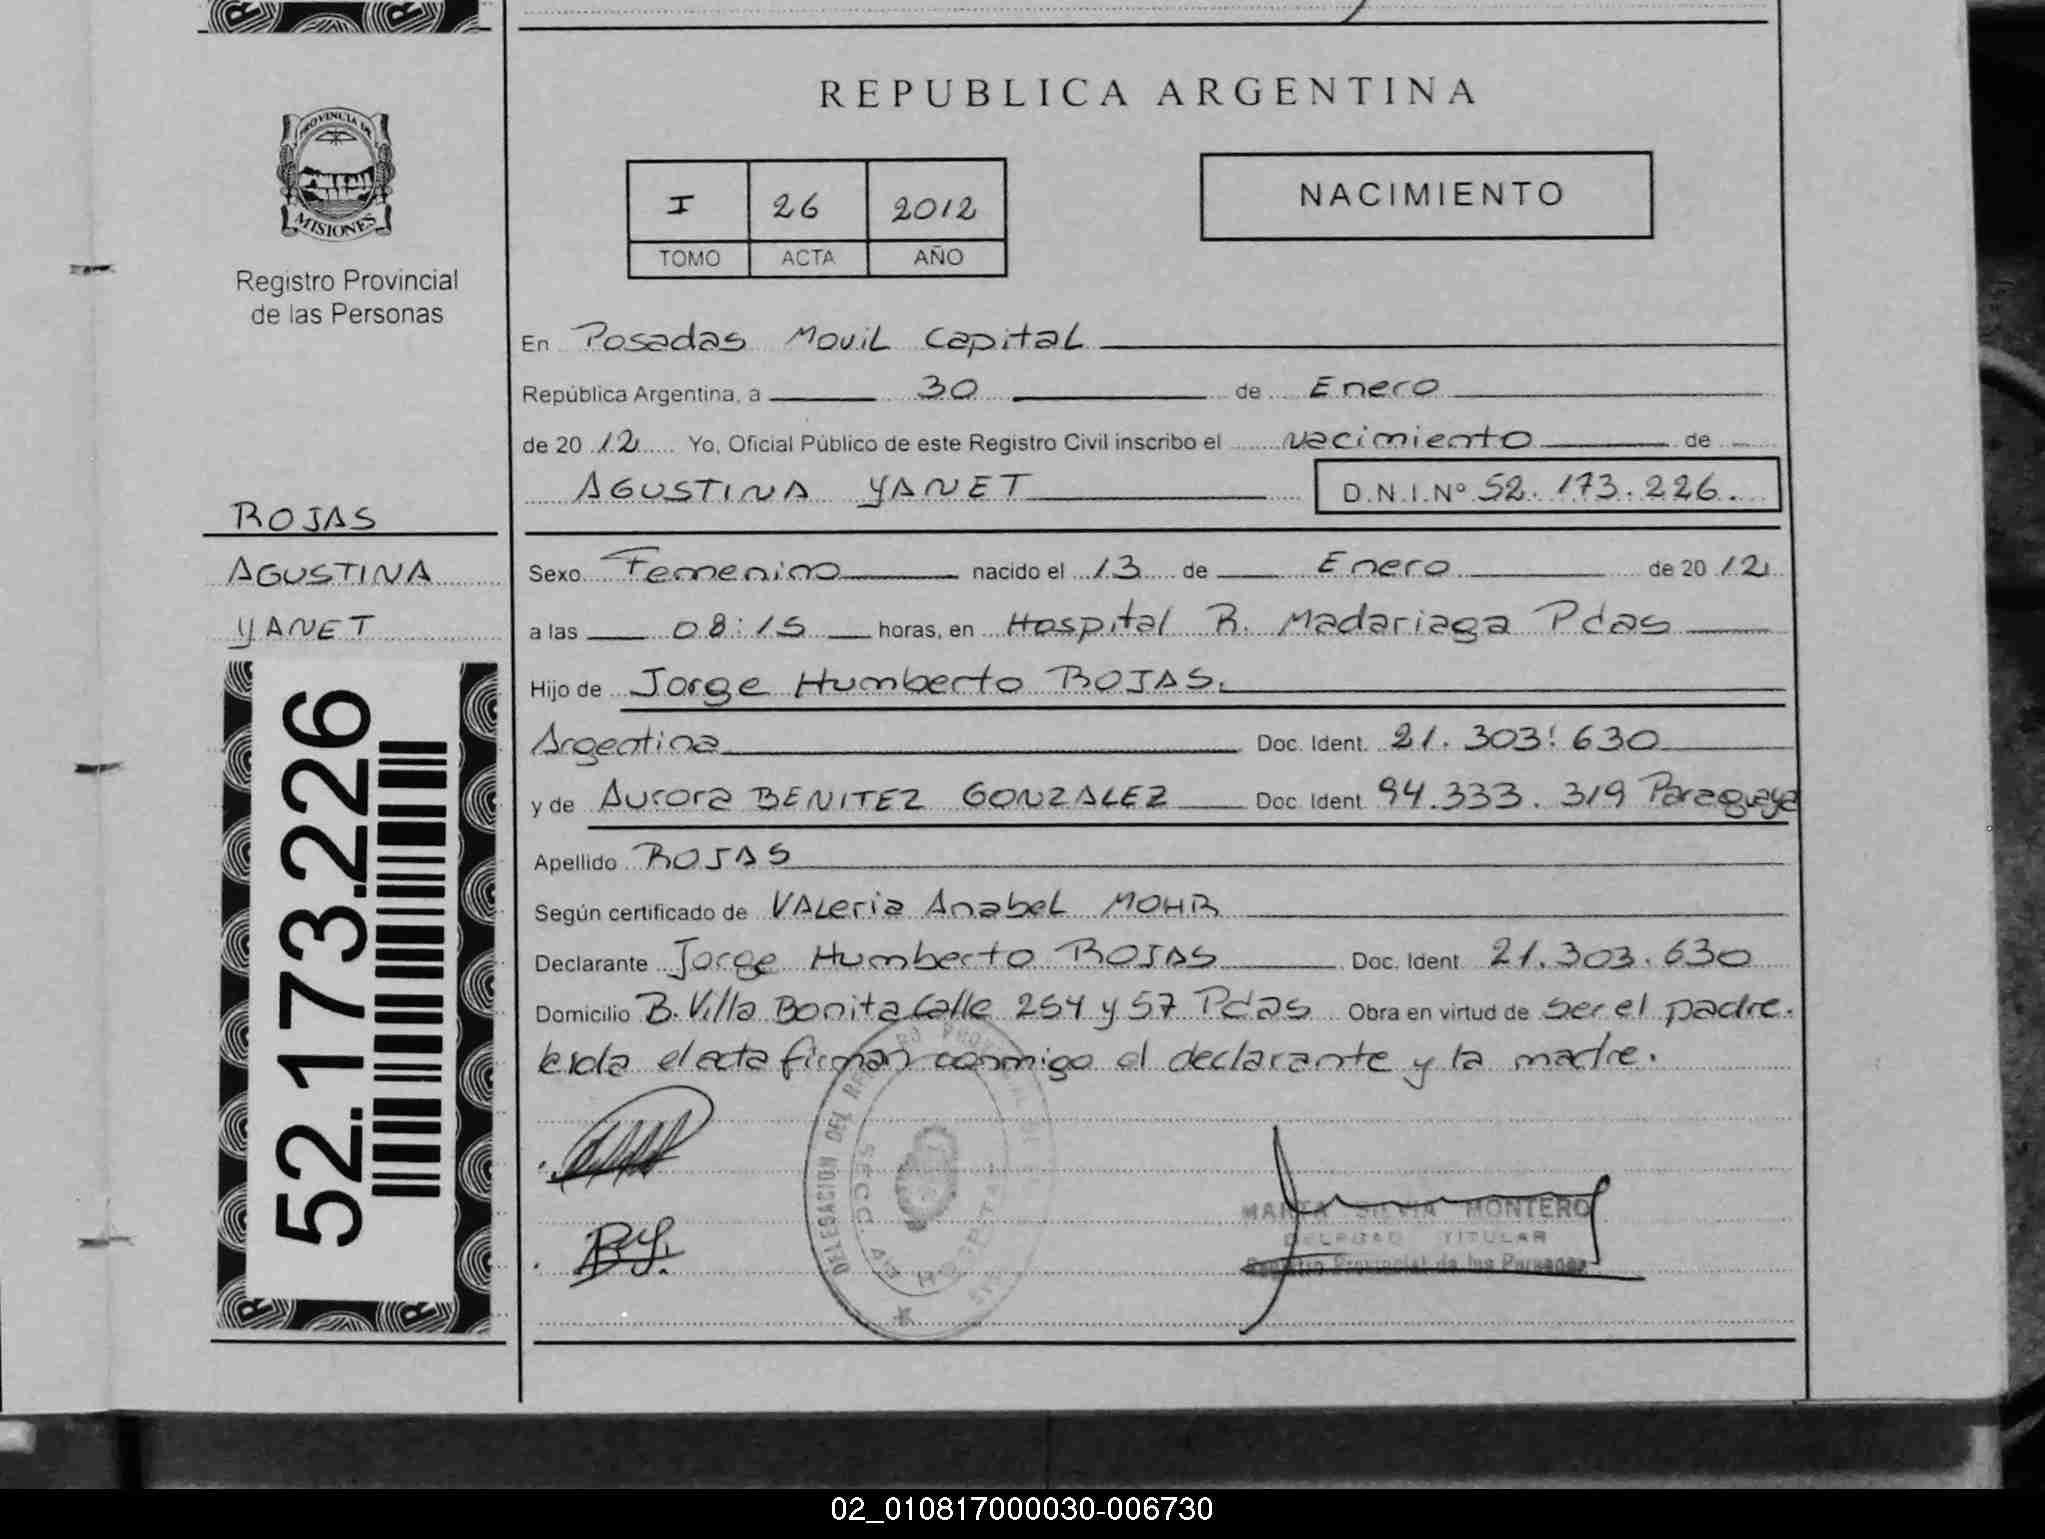 REPUBLICA ARGENTINA
PROVINCIA DE
MISIONES
Registro Provincial
de las Personas
I 26 2012
TOMO ACTA AÑO
NACIMIENTO
En Posadas Movil Capital
República Argentina, a 30 de Enero
de 2012 Yo, Oficial Público de este Registro Civil inscribo el nacimiento de
AGUSTINA YANET D.N.I.Nº 52.173.226.
ROJAS
AGUSTINA
YANET
52.173.226
Sexo Femenino nacido el 13 de Enero de 2012
a las 08:15 horas, en Hospital R. Madariaga Pdas
Hijo de Jorge Humberto ROJAS.
Argentina Doc. Ident. 21.303.630
y de Aurora BENITEZ GONZALEZ Doc. Ident 94.333.319 Paraguaya
Apellido ROJAS
Según certificado de VALeria Anabel MOHR
Declarante Jorge Humberto ROJAS Doc. Ident 21.303.630
Domicilio B. Villa Bonita Calle 254 y 57 Pdas Obra en virtud de ser el padre.
leida el acta firman conmigo el declarante y la madre.
DELEGACION DEL REGISTRO PROVINCIAL
SECC. 4ª HOSPITAL
MARTA SILVIA MONTERO
DELEGAD TITULAR
Registro Provincial de las Personas
02_010817000030-006730